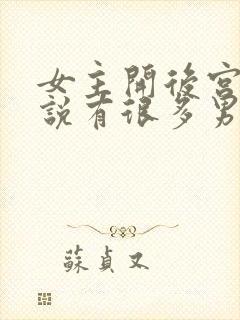 女主開後宮
說有很多男
蘇貞又